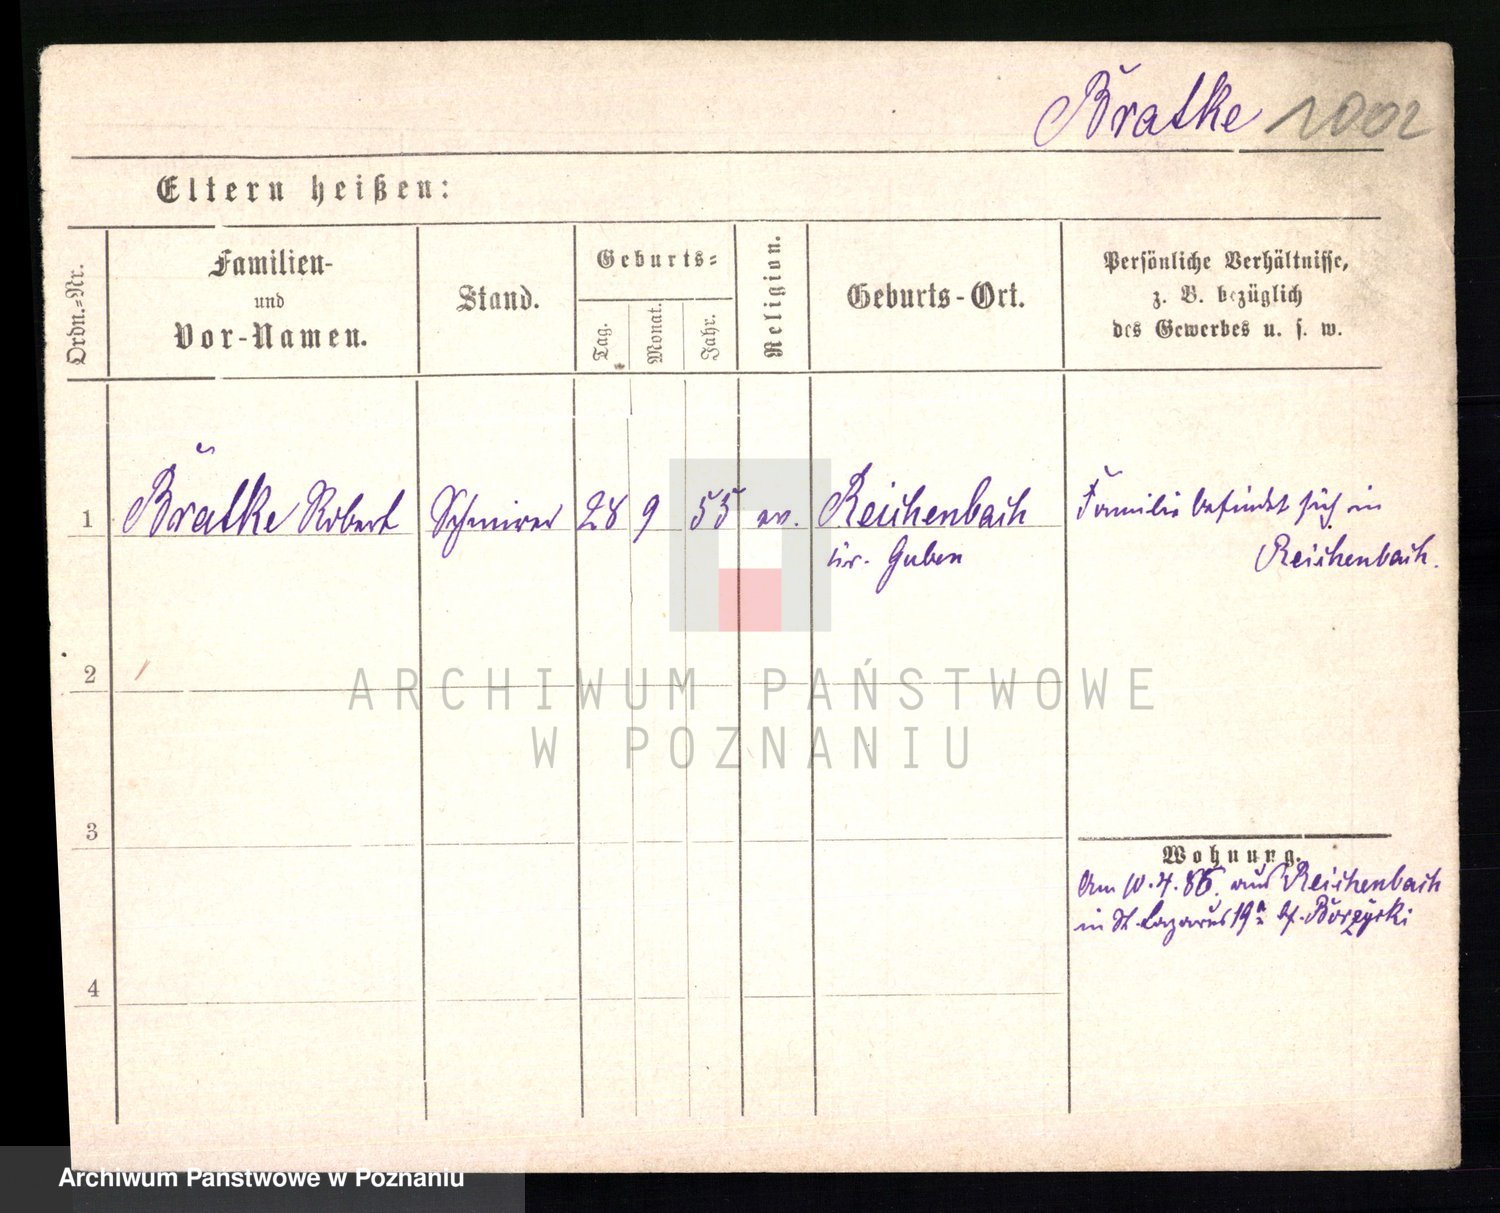 Bratke 1002
Eltern heißen:
Ordn.-Nr.
Familien-
und
Vor-Namen.
Stand.
Geburts-
Tag.
Monat.
Jahr.
Religion.
Geburts-Ort.
Persönliche Verhältnisse,
z. B. bezüglich
des Gewerbes u. s. w.
1 Bratke Robert 28 9 55 ev. Reichenbach Familie befindet sich in
Kr. Guben Reichenbach.
2
3
Wohnung.
Am 10.4.86. aus Reichenbach
in St. Lazarus 19a bf. Borzycki
4
ARCHIWUM PAŃSTWOWE
W POZNANIU
Archiwum Panstwowe w Poznaniu